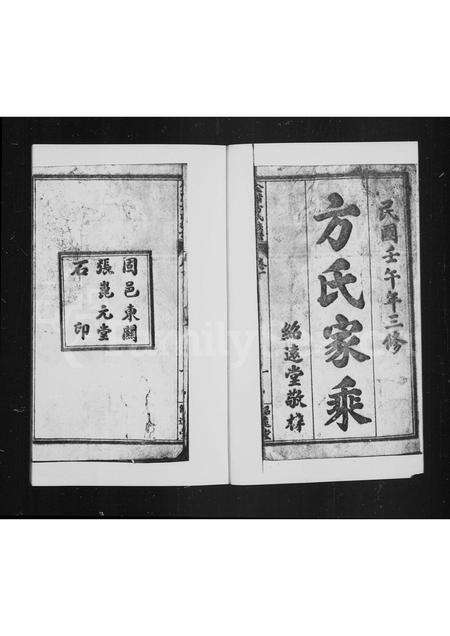 民國壬午年三修
方氏家乘
紹遠堂敬梓
固邑東關
張崑元堂
石印